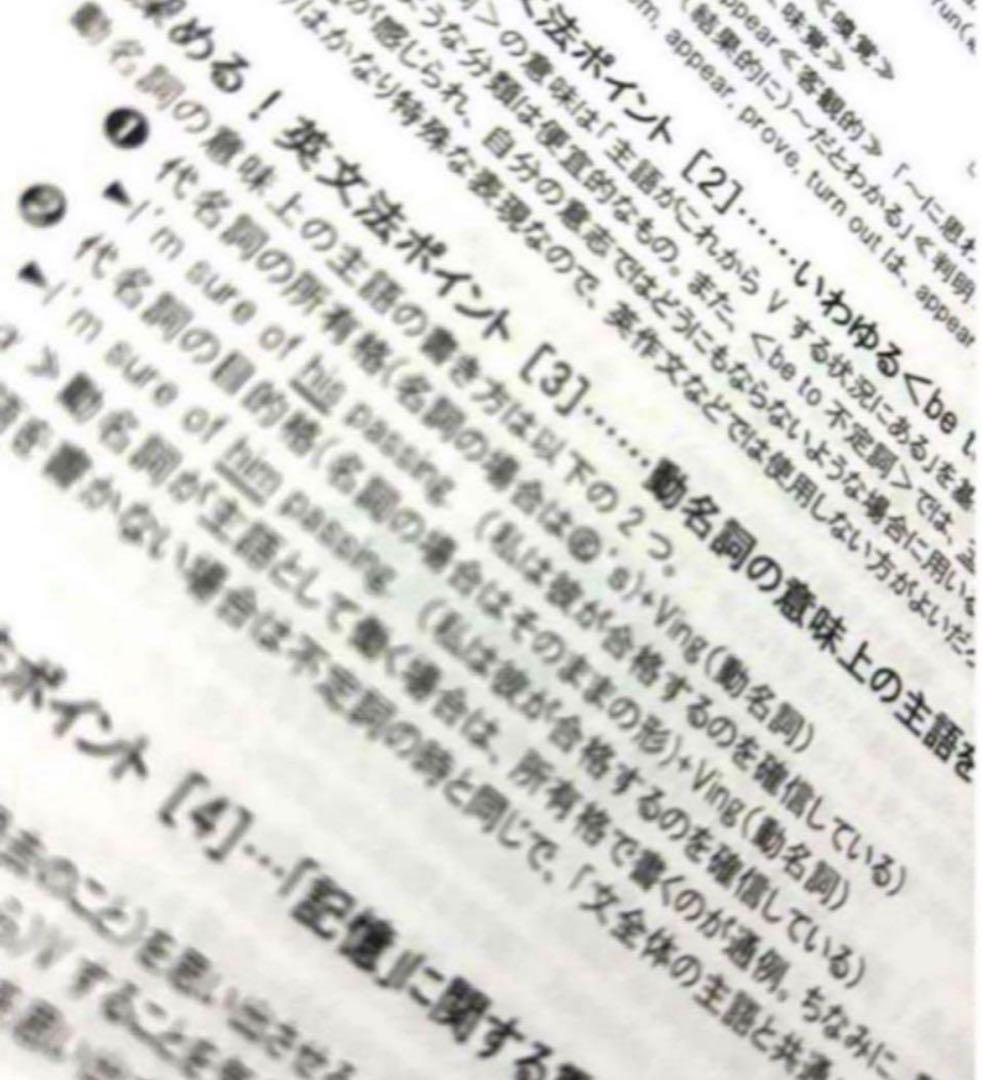 <嗅覚>
味覚>
ppear<客観的> 「~に思わ
(結果的に)~だとわかる」<判明
m, appear, prove, turn out は、appear
文法ポイント [2]……いわゆる<be t
>の意味は「主語がこれから V する状況にある」を基
ような分類は便宜的なもの。また、<be to 不定詞>では、
が感じられ、自分の意志ではどうにもならないような場合に用い
はかなり特殊な表現なので、英作文などでは使用しない方がよいだ
める!英文法ポイント [3]……動名詞の意味上の主語を
動名詞の意味上の主語の書き方は以下の2つ。
❶ 代名詞の所有格(名詞の場合は's)+Ving(動名詞)
I'm sure of his passing. (私は彼が合格するのを確信している)
❷ 代名詞の目的格(名詞の場合はそのままの形)+Ving(動名詞)
I'm sure of him passing. (私は彼が合格するのを確信している)
>動名詞が主語として働く場合は、所有格で書くのが通例。ちなみに、
語を書かない場合は不定詞の時と同じで、「文全体の主語と共通
ポイント [4]…「記憶」に関する
のこと)を思い出させる
V することを